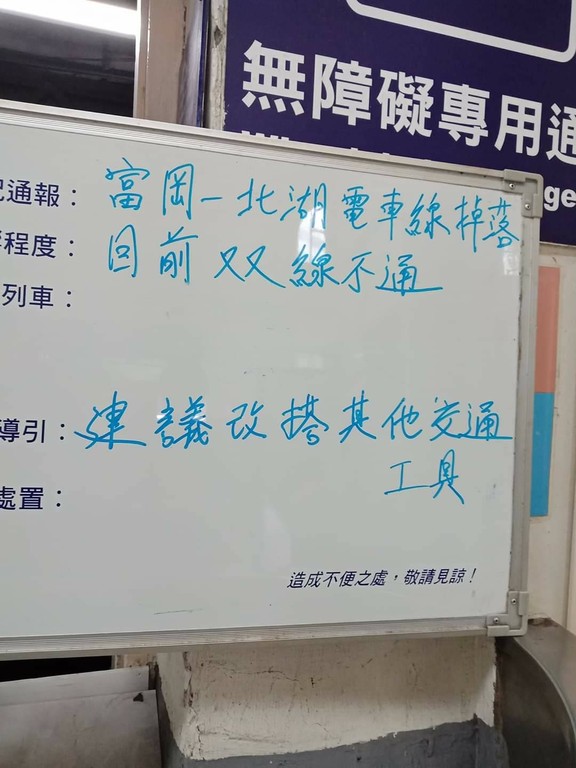 無障礙專用通
ge
通報：富岡－北湖電車線掉落
程度：目前双双線不通
列車：
導引：建議改搭其他交通
工具
處置：
造成不便之處，敬請見諒！